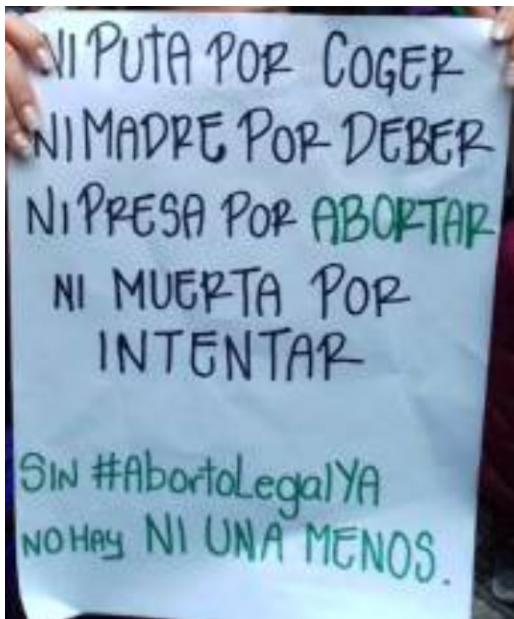 NI PUTA POR COGER
NI MADRE POR DEBER
NI PRESA POR ABORTAR
NI MUERTA POR
INTENTAR
SIN #AbortoLegalYA
NO HAY NI UNA MENOS.